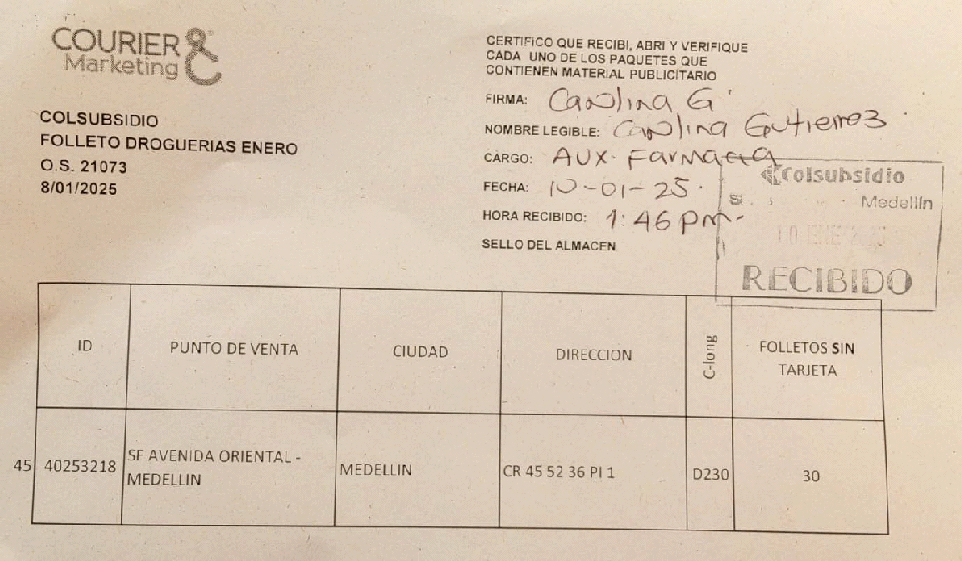 COURIER
Marketing
COLSUBSIDIO
FOLLETO DROGUERIAS ENERO
O.S. 21073
8/01/2025
CERTIFICO QUE RECIBI, ABRI Y VERIFIQUE
CADA UNO DE LOS PAQUETES QUE
CONTIENEN MATERIAL PUBLICITARIO
FIRMA: Carolina G.
NOMBRE LEGIBLE: Carolina Gutierrez.
CARGO: AUX. Farmacia
FECHA: 10-01-25.
HORA RECIBIDO: 1:46 pm.
SELLO DEL ALMACEN
Colsubsidio
Medellín
10 ENE
RECIBIDO
ID
PUNTO DE VENTA
CIUDAD
DIRECCION
C-long
FOLLETOS SIN
TARJETA
45
40253218
SF AVENIDA ORIENTAL -
MEDELLIN
MEDELLIN
CR 45 52 36 PI 1
D230
30